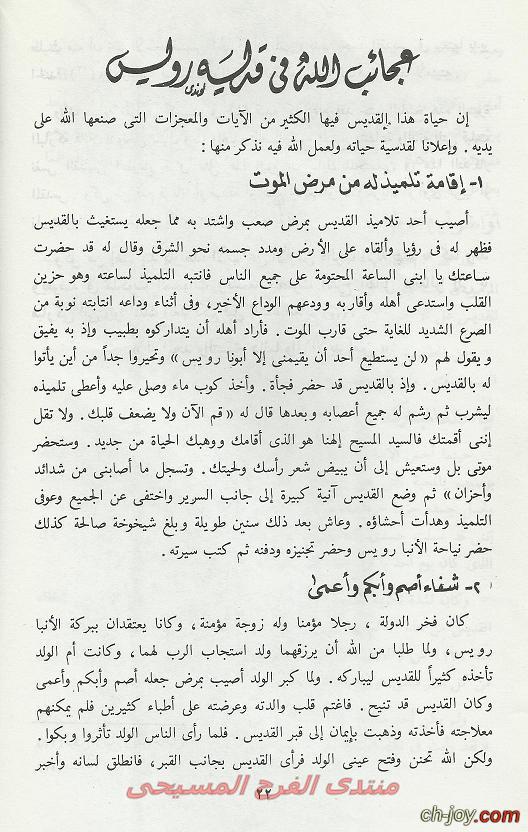 عجائب الله فى قديسه رويس
إن حياة هذا القديس فيها الكثير من الآيات والمعجزات التى صنعها الله على
يديه . وإعلانا لقدسية حياته ولعمل الله فيه نذكر منها :
١- إقامة تلميذ له من مرض الموت
أصيب أحد تلاميذ القديس بمرض صعب واشتد به مما جعله يستغيث بالقديس
فظهر له فى رؤيا وألقاه على الأرض ومدد جسمه نحو الشرق وقال له قد حضرت
ساعتك يا ابنى الساعة المحتومة على جميع الناس فانتبه التلميذ لساعته وهو حزين
القلب واستدعى أهله وأقاربه وودعهم الوداع الأخير، وفى أثناء وداعه انتابته نوبة من
الصرع الشديد للغاية حتى قارب الموت . فأراد أهله أن يتداركوه بطبيب وإذ به يفيق
ويقول لهم «لن يستطيع أحد أن يقيمنى إلا أبونا رويس» وتحيروا جداً من أين يأتوا
له بالقديس . وإذ بالقديس قد حضر فجأة . وأخذ كوب ماء وصلى عليه وأعطى تلميذه
ليشرب ثم رشم له جميع أعصابه وبعدها قال له «قم الآن ولا يضعف قلبك . ولا تقل
إننى أقمتك فالسيد المسيح إلهنا هو الذى أقامك ووهبك الحياة من جديد . وستحضر
موتى بل وستعيش إلى أن يبيض شعر رأسك ولحيتك . وتسجل ما أصابنى من شدائد
وأحزان» ثم وضع القديس آنية كبيرة إلى جانب السرير واختفى عن الجميع وعوفى
التلميذ وهدأت أحشاؤه . وعاش بعد ذلك سنين طويلة وبلغ شيخوخة صالحة كذلك
حضر نياحة الأنبا رويس وحضر تجنيزه ودفنه ثم كتب سيرته .
٢- شفاء أصم وأبكم وأعمى
كان فخر الدولة ، رجلا مؤمنا وله زوجة مؤمنة، وكانا يعتقدان ببركة الأنبا
رويس، ولما طلبا من الله أن يرزقهما ولد استجاب الرب لهما، وكانت أم الولد
تأخذه كثيراً للقديس ليباركه . ولما كبر الولد أصيب بمرض جعله أصم وأبكم وأعمى
وكان القديس قد تنيح . فاغتم قلب والدته وعرضته على أطباء كثيرين فلم يمكنهم
معالجته فأخذته وذهبت بإيمان إلى قبر القديس . فلما رأى الناس الولد تأثروا وبكوا .
ولكن الله تحنن وفتح عينى الولد فرأى القديس بجانب القبر، فانطلق لسانه وأخبر
منتدى الفرح المسيحى
٢٢
ch-joy.com